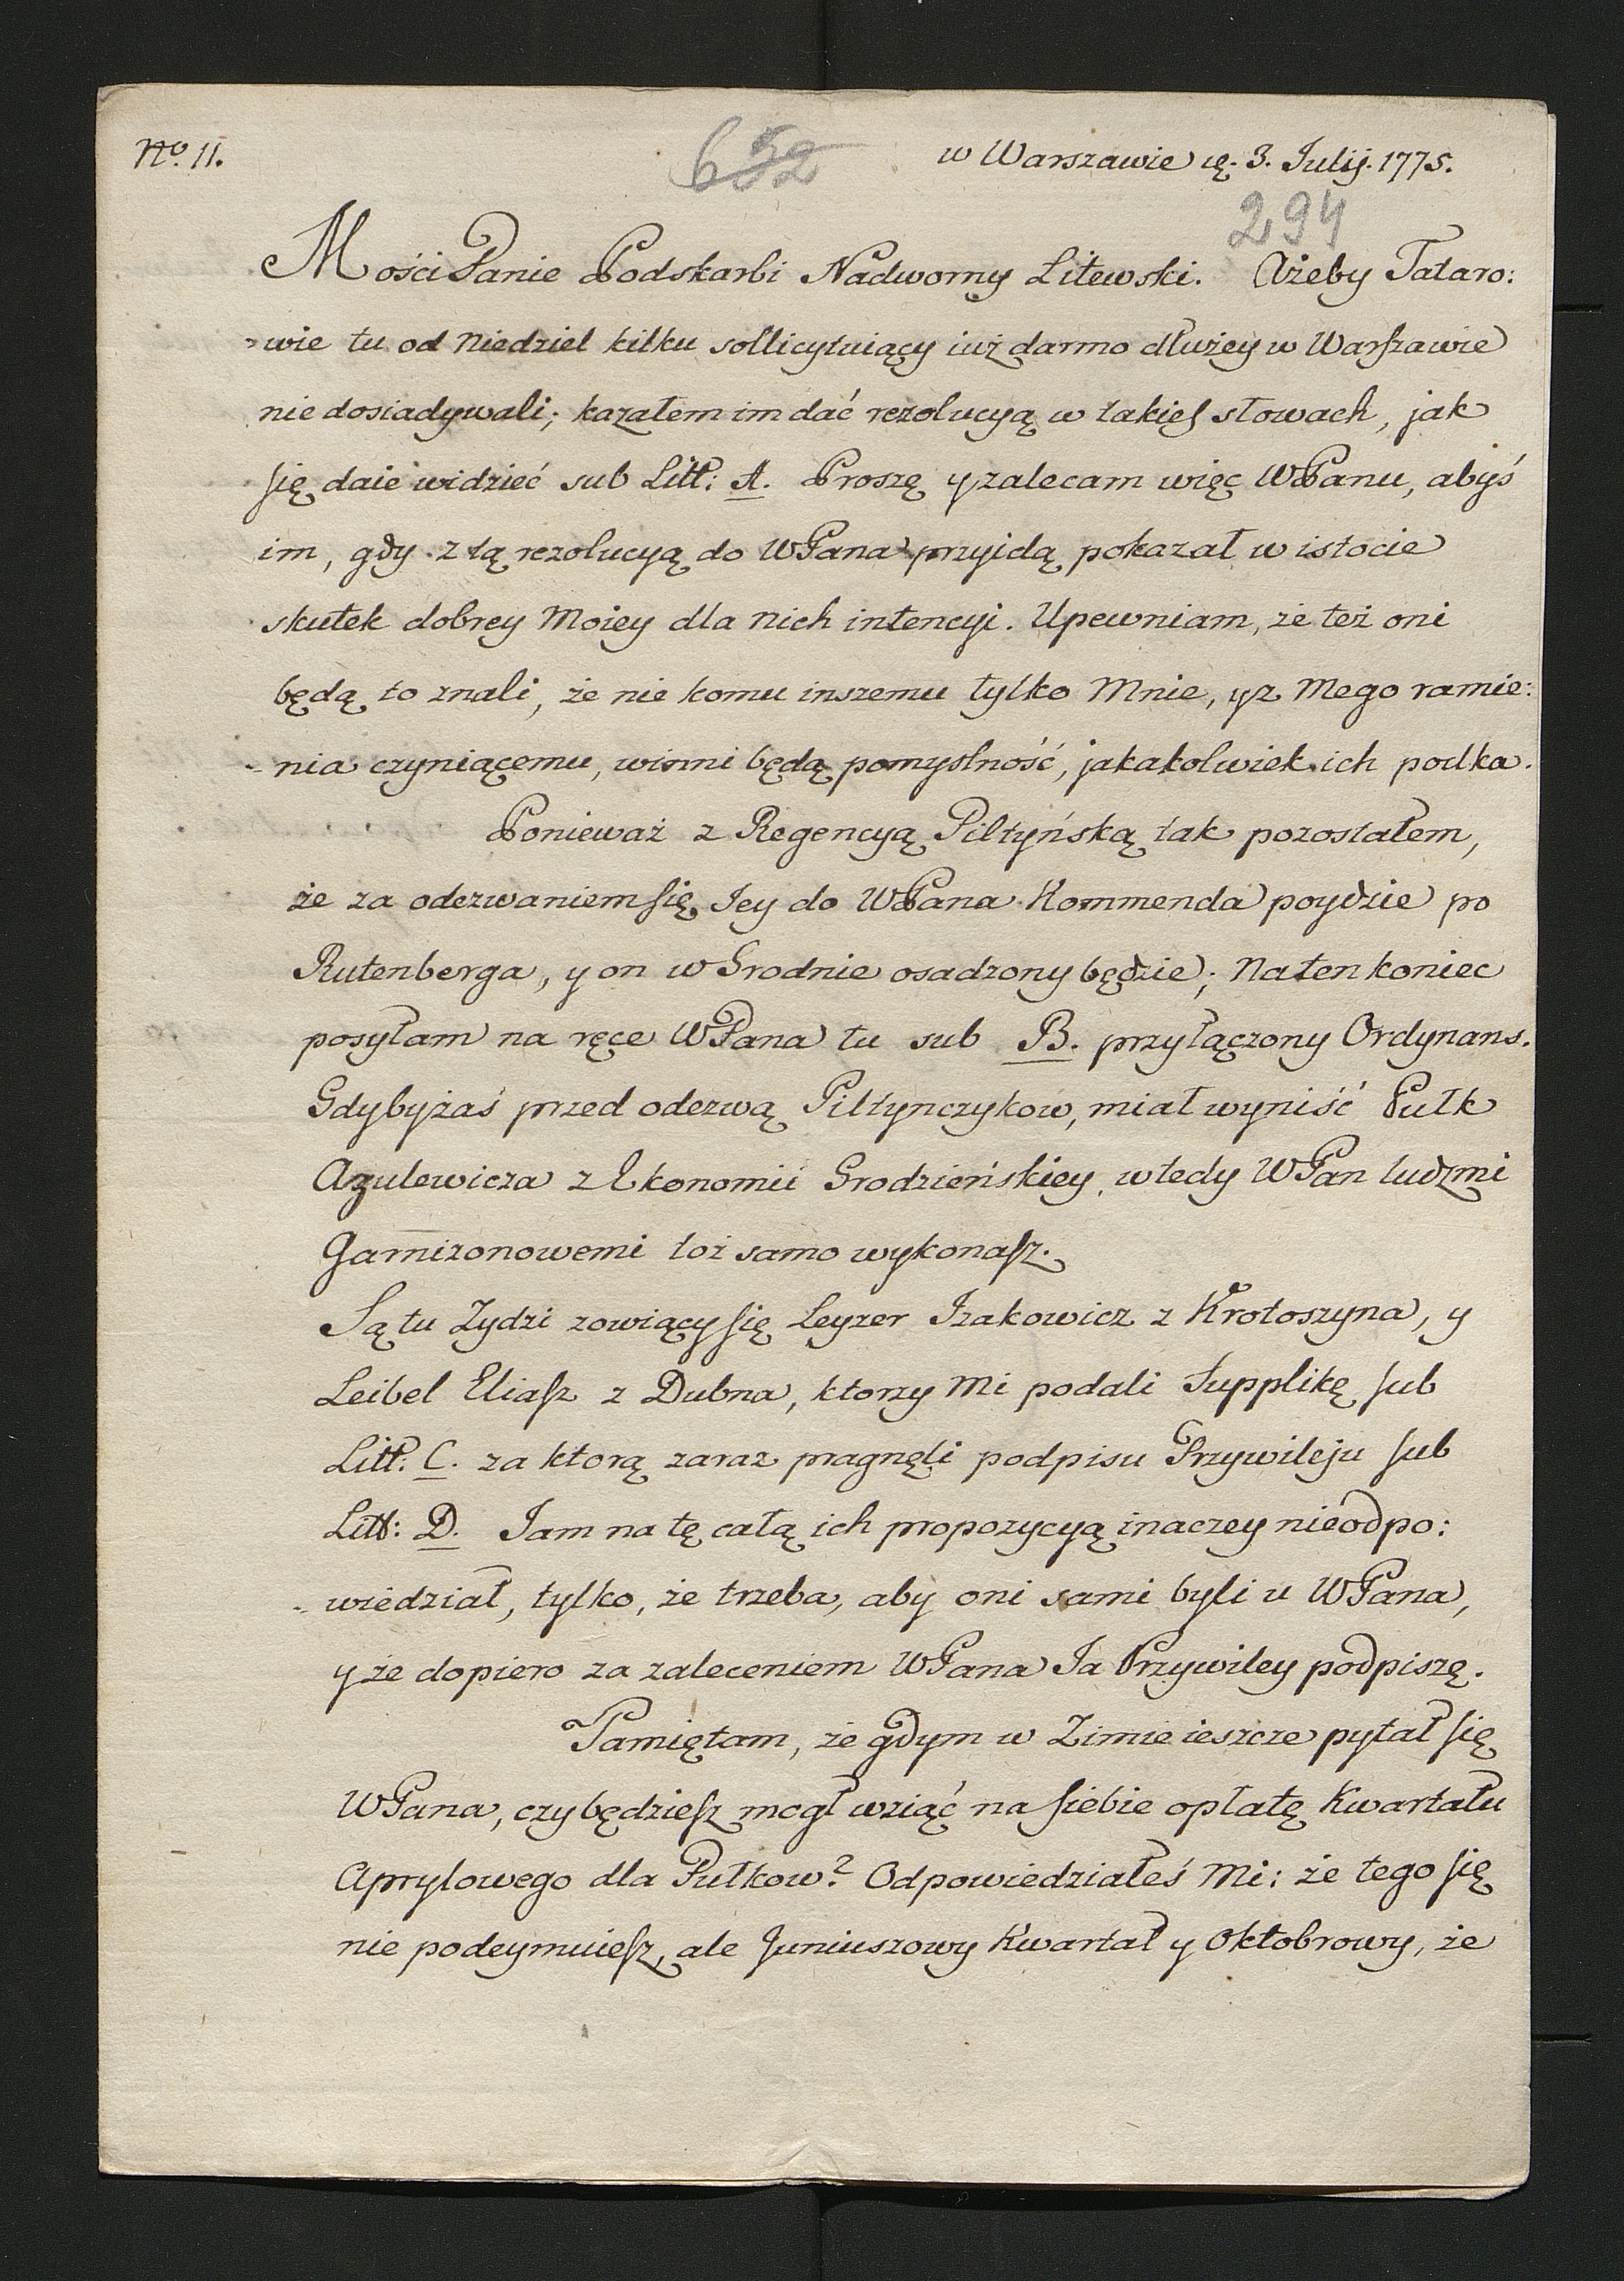 No. 11.
652
w Warszawie ę. 3. Julij. 1775.
294
Mości Panie Podskarbi Nadworny Litewski. Ażeby Tataro:
-wie tu od Niedziel kilku sollicytuiący iuż darmo dłużey w Warszawie
nie dosiadywali; kazałem im dać rezolucyą w takich słowach, jak
się daie widzieć sub Litt: A. Proszę y zalecam więc WPanu, abyś
im, gdy z tą rezolucyą do WPana przyidą, pokazał w istocie
skutek dobrey Moiey dla nich intencyi. Upewniam, że też oni
będą to znali, że nie komu inszemu tylko Mnie, y z Mego ramie:
-nia czyniącemu, winni będą pomyslność, jakakolwiek ich podka.
Ponieważ z Regencyą Piltyńską tak pozostałem,
że za odezwaniem się Jey do WPana Kommenda poydzie po
Rutenberga, y on w Grodnie osadzony będzie; Na ten koniec
posyłam na ręce WPana tu sub B. przyłączony Ordynans.
Gdybyżaś przed odezwą Piltynczykow, miał wyniść Pułk
Azulewicza z Ekonomii Grodzieńskiey, wtedy WPan ludzmi
Garnizonowemi toż samo wykonasz.
Są tu Zydzi zowiący się Leyzer Izakowicz z Krotoszyna, y
Leibel Eliasz z Dubna, ktorzy Mi podali Supplikę sub
Litt: C. za ktorą zaraz pragnęli podpisu Przywileju sub
Litt: D. Jam na tę całą ich propozycyą inaczey nieodpo:
-wiedział, tylko, że trzeba, aby oni sami byli u WPana,
y że dopiero za zaleceniem WPana Ja Przywiley podpiszę.
Pamiętam, że gdym w Zimie ieszcze pytał się
WPana, czy będziesz mogł wziąć na siebie opłatę Kwartału
Aprylowego dla Pułkow? Odpowiedziałeś Mi: że tego się
nie podeymuiesz, ale Juniuszowy Kwartał y Oktobrowy, że